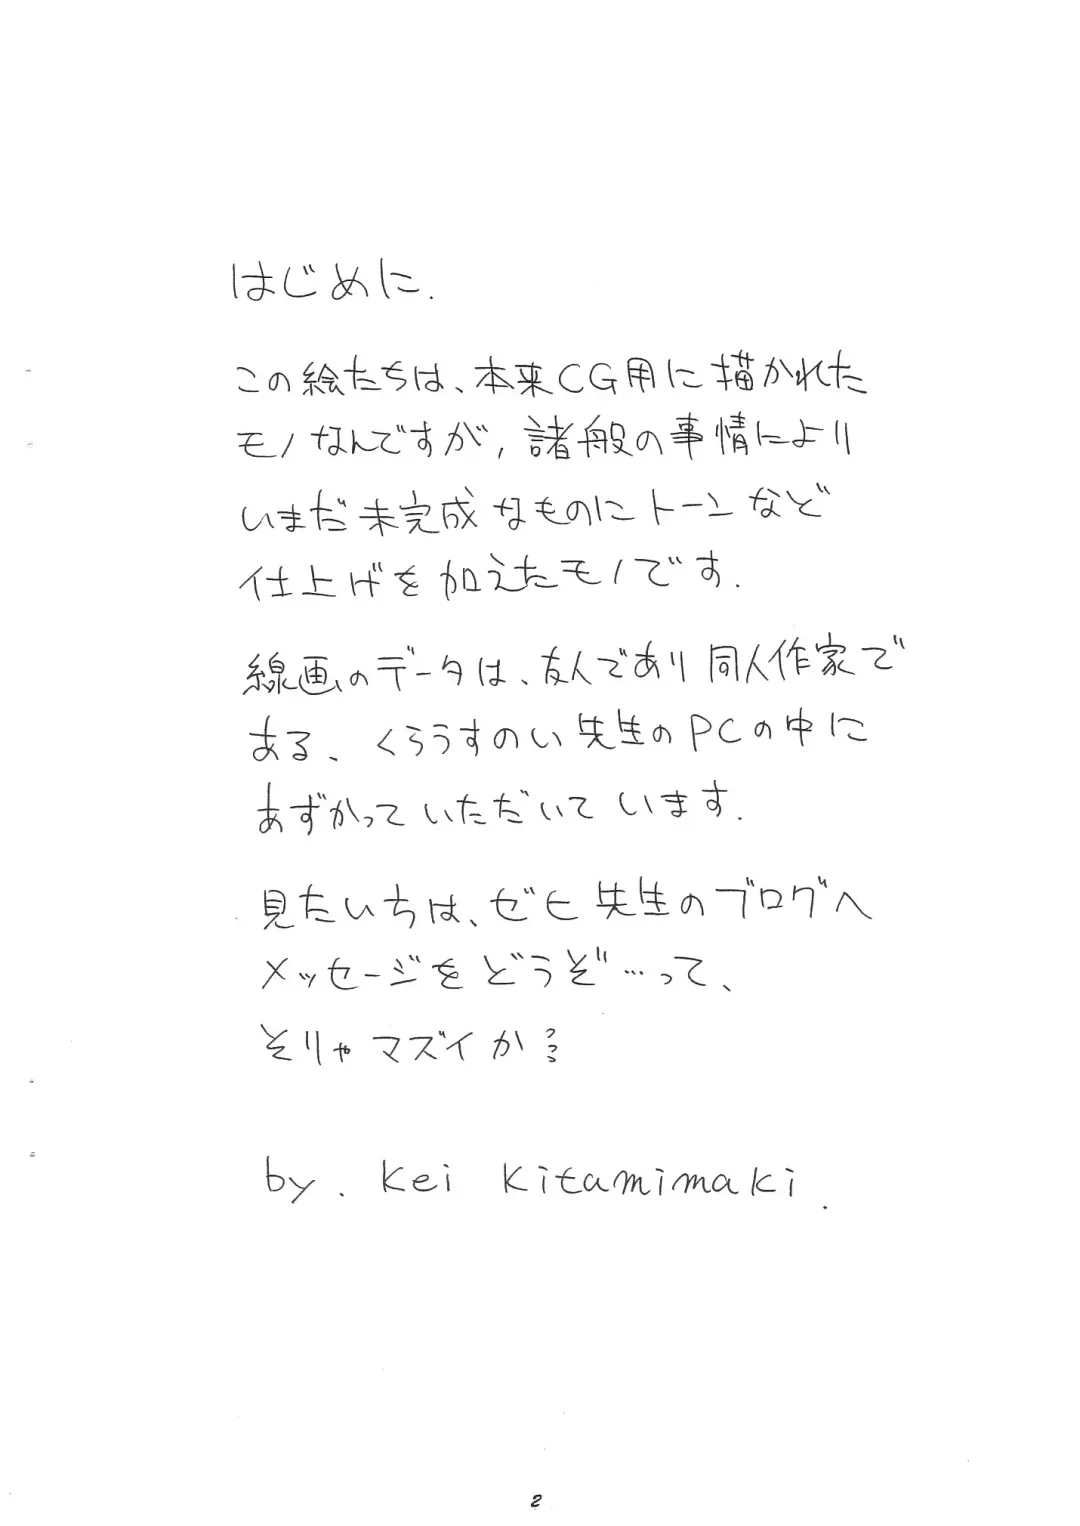 はじめに.
この絵たちは、本来CG用に描かれた
モノなんですが, 諸般の事情により
いまだ未完成なものにトーンなど
仕上げを加えたモノです.
線画のデータは、友人であり同人作家で
ある、くろうすのい先生のPCの中に
あずかっていただいています.
見たいちは、ゼヒ先生のブログへ
メッセージをどうぞ…って、
そりゃマズイか??
by. Kei Kitamimaki.
2